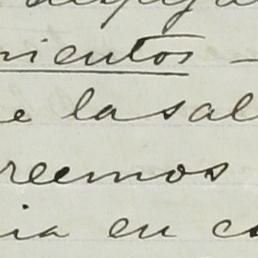 nientos —
e la sal
reemos
ia en co